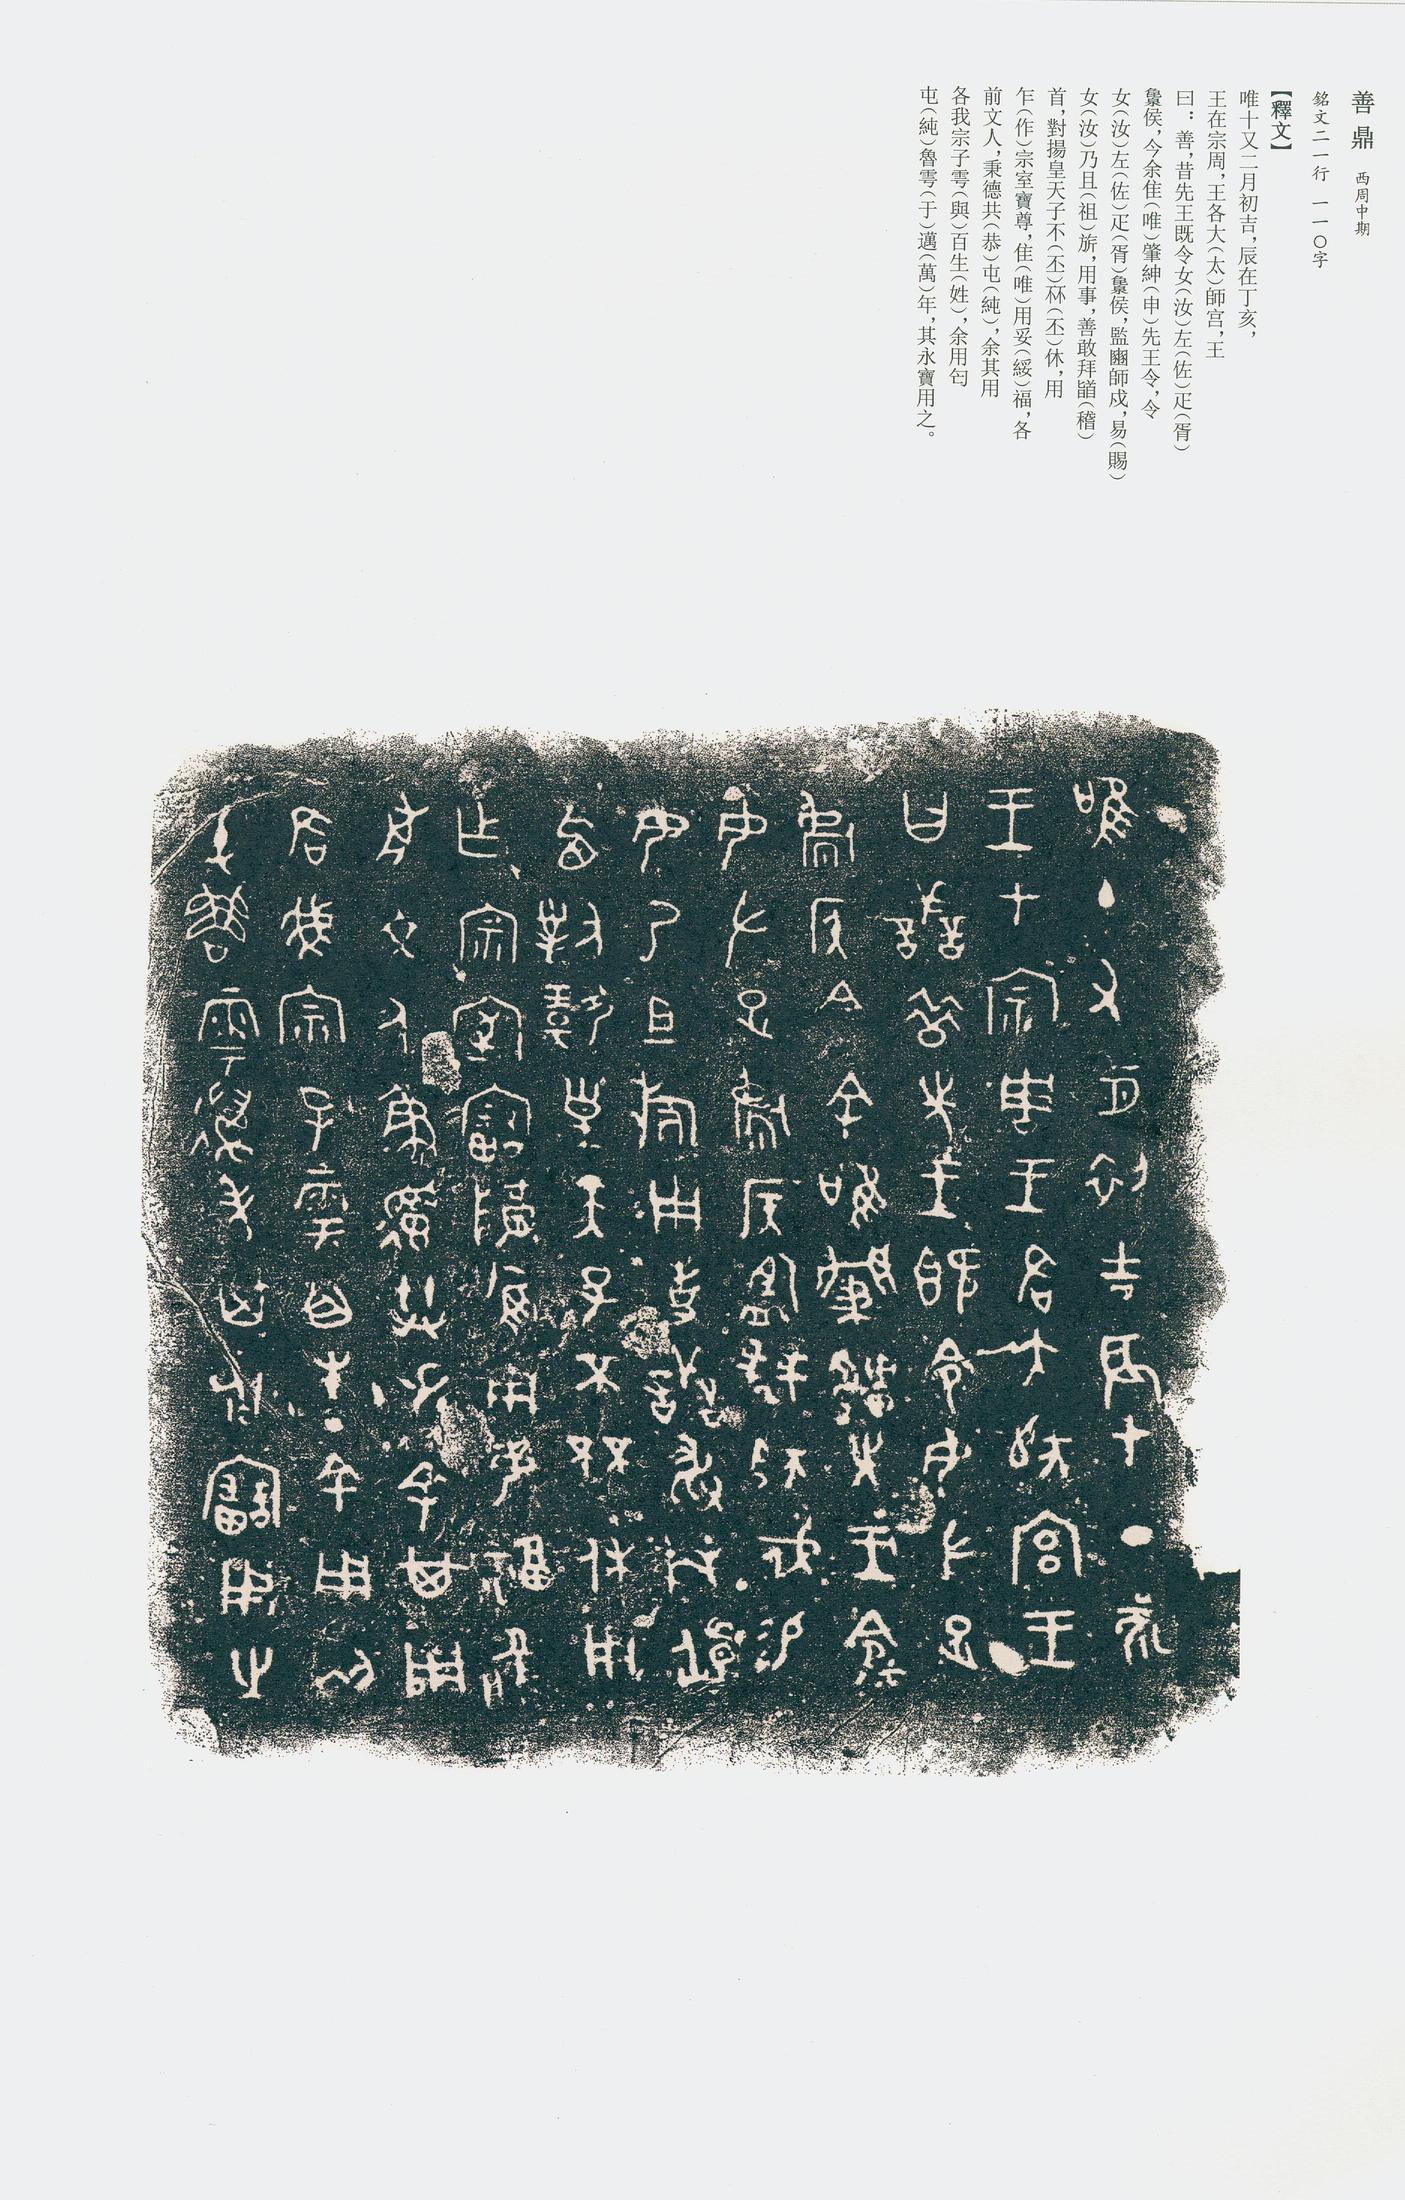 善鼎 西周中期
銘文二一行 一一〇字
【釋文】
唯十又二月初吉，辰在丁亥，
王在宗周，王各大（太）師宫，王
曰：善，昔先王既令女（汝）左（佐）疋（胥）
侯，今余隹（唯）肇紳（申）先王令，令
女（汝）左（佐）疋（胥）侯，監豳師戍，易（賜）
女（汝）乃且（祖）旂，用事，善敢拜䭫（稽）
首，對揚皇天子不（丕）㔻（丕）休，用
乍（作）宗室寶尊，隹（唯）用妥（綏）福，各
前文人，秉德共（恭）屯（純），余其用
各我宗子雩（與）百生（姓），余用匄
屯（純）魯雩（于）邁（萬）年，其永寶用之。